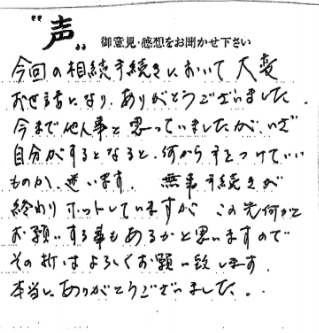 "声" 御意見・感想をお聞かせ下さい
今回の相続手続きにおいて大変
お世話になり、ありがとうございました。
今まで他人事と思っていましたが、いざ
自分がするとなると、何から手をつけていい
ものか、迷います。 無事手続きが
終わりホットしていますが この先何かと
お願いする事もあるかと思いますので
その折はよろしくお願い致します。
本当にありがとうございました。